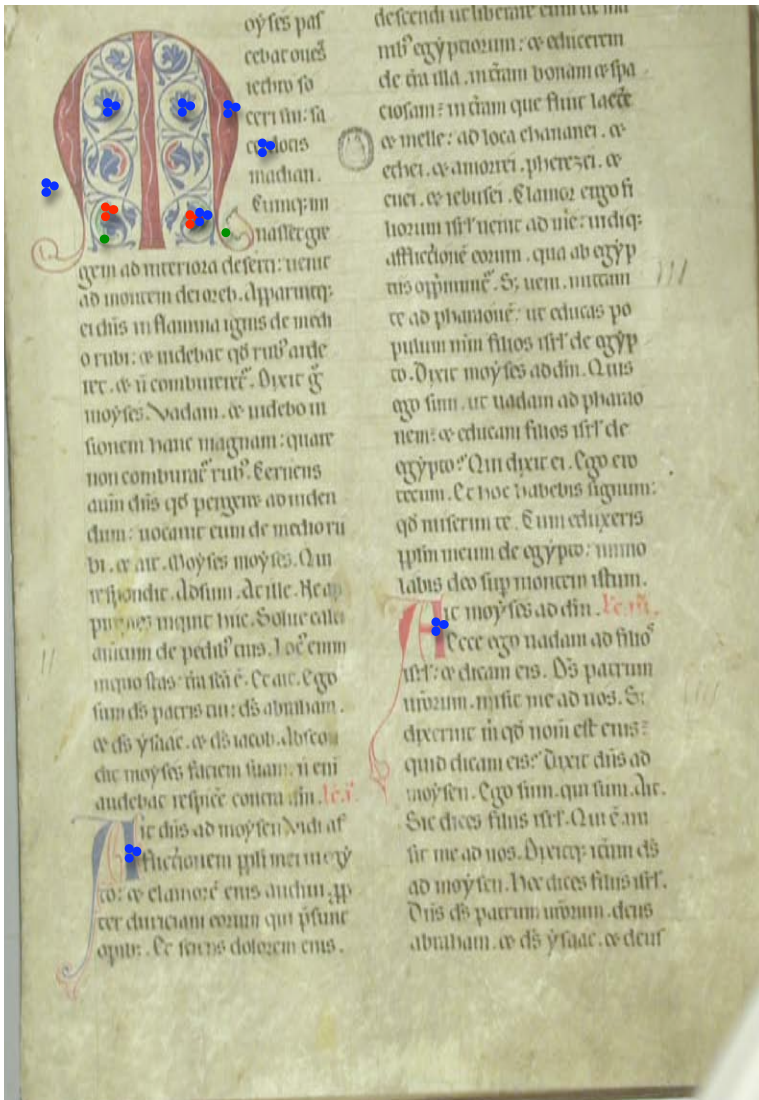 Moyses pas
cebat oues
iethro so
ceri sui: sa
cerdotis
madian.
Cumq; mi
nasset gre
gem ad interiora deserti: uenit
ad montem dei oreb. Apparuitq;
ei dn̄s in flamma ignis de medi
o rubi: ⁊ uidebat qd̄ rubꝰ arde
ret. ⁊ n̄ combureret᷑. Dixit g̊
moẏses. Vadam. ⁊ uidebo ui
sionem hanc magnam: quare
non comburat᷑ rubꝰ. Cernens
autē dn̄s qd̄ pergeret ad uiden
dum: uocauit eum de medio ru
bi. ⁊ ait. Moẏses moẏses. Qui
respondit. Adsum. At ille. Ne ap
inquit huc. Solue calci
de pedibꝰ tuis. Locꝰ enim
in quo stas: t̄ra sc̄a ē. Et ait. Ego
sum ds̄ patris tui: ds̄ abraham.
⁊ ds̄ ẏsaac. ⁊ ds̄ iacob. Abscon
dit moẏses faciem suam. n̄ eni
audebat respic̄e contra dm̄.
Ait dn̄s ad moẏsen. Vidi af
flictionem pp̄li mei in egẏ
to: ⁊ clamorē eius audiui. ꝓp
ter duriciam eorum qui p̄sunt
Et sciens dolorem eius.
descendi ut liberare eum de ma
nibꝰ egẏptiorum: ⁊ educerem
de t̄ra illa. in t̄ram bonam ⁊ spa
ciosam: in t̄ram que fluit lacte
⁊ melle: ad loca chananei. ⁊
ethei. ⁊ amorrei. pherezei. ⁊
euei. ⁊ iebusei. Clamor ergo fi
liorum isrl̄ uenit ad me: uidiq;
afflictionē eorum. qua ab egẏp
tiis opp̄munt᷑. S; ueni. mittam
te ad pharaonē: ut educas po
pulum meum filios isrl̄ de egẏp
to. Dixit moẏses ad dm̄. Quis
ego sum. ut uadam ad pharao
nem: ⁊ educam filios isrl̄ de
egẏpto? Qui dixit ei. Ego ero
tecum. Et hoc habebis signum:
qd̄ miserim te. Cum eduxeris
pp̄lm meum de egẏpto: immo
labis deo sup montem istum.
Ait moẏses ad dm̄.
Ecce ego uadam ad filios
isrl̄: ⁊ dicam eis. Ds̄ patrum
ur̄orum. misit me ad uos. Si
dixerint m̄ qd̄ nom̄ est eius?
quid dicam eis? Dixit dn̄s ad
moẏsen. Ego sum. qui sum. Ait.
Sic dices filiis isrl̄. Qui ē. mi
sit me ad uos. Dixitq; itūm ds̄
ad moẏsen. Hec dices filiis isrl̄.
Dn̄s ds̄ patrum ur̄orum. deus
abraham. ⁊ ds̄ ẏsaac. ⁊ deus